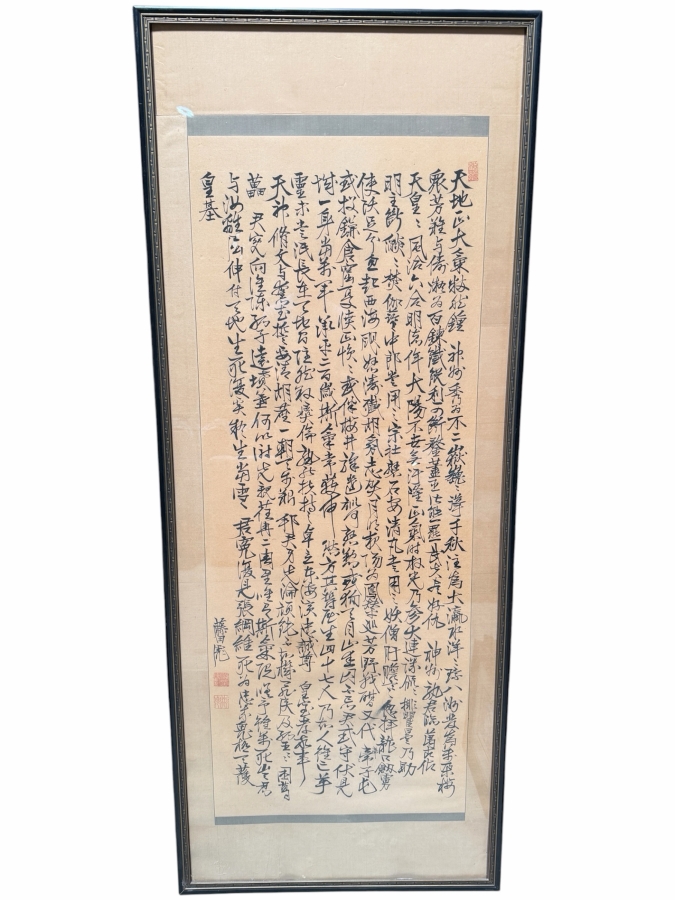 天地正大氣粹然鍾神州秀為不二嶽巍〻聳千秋注為大瀛水洋〻環八洲發為萬朶櫻
衆芳難与儔凝為百錬鐵鋭利可割鍪藎臣皆熊羆武夫盡好仇神州孰君臨萬古仰
天皇〻風洽六合明德侔大陽不世無汚隆正氣時放光乃參大連議侃〻排瞿曇乃助
明主断焔〻焚伽藍中郎嘗用之宗社磐石安清丸嘗用之妖僧肝膽寒忽揮龍口劔虜
使頭足分忽起西海颶怒濤殲胡氛志賀月明夜陽為鳳輦巡芳野戰酣日又代帝子屯
或投鎌倉窟憂憤正愪〻或伴櫻井驛遺訓何殷勤或殉天目山幽囚不忘君或守伏見
城一身當萬軍承平二百歳斯氣常獲伸然方其鬱屈生四十七人乃知人雖亡英
靈未嘗泯長在天地間隠然叙彝倫孰能扶持之卓立東海濱忠誠尊皇室孝敬事
天神修文与奮武誓欲清胡塵一朝天歩艱邦君身先淪頑鈍不知機罪戻及孤臣〻困葛
藟君冤向誰陳孤子遠墳墓何以謝先親荏苒二周星唯有斯氣隨嗟予雖萬死豈忍
与汝離屈伸付天地生死復奚疑生當雪君冤復見張綱維死為忠義鬼極天護
皇基
藤田彪